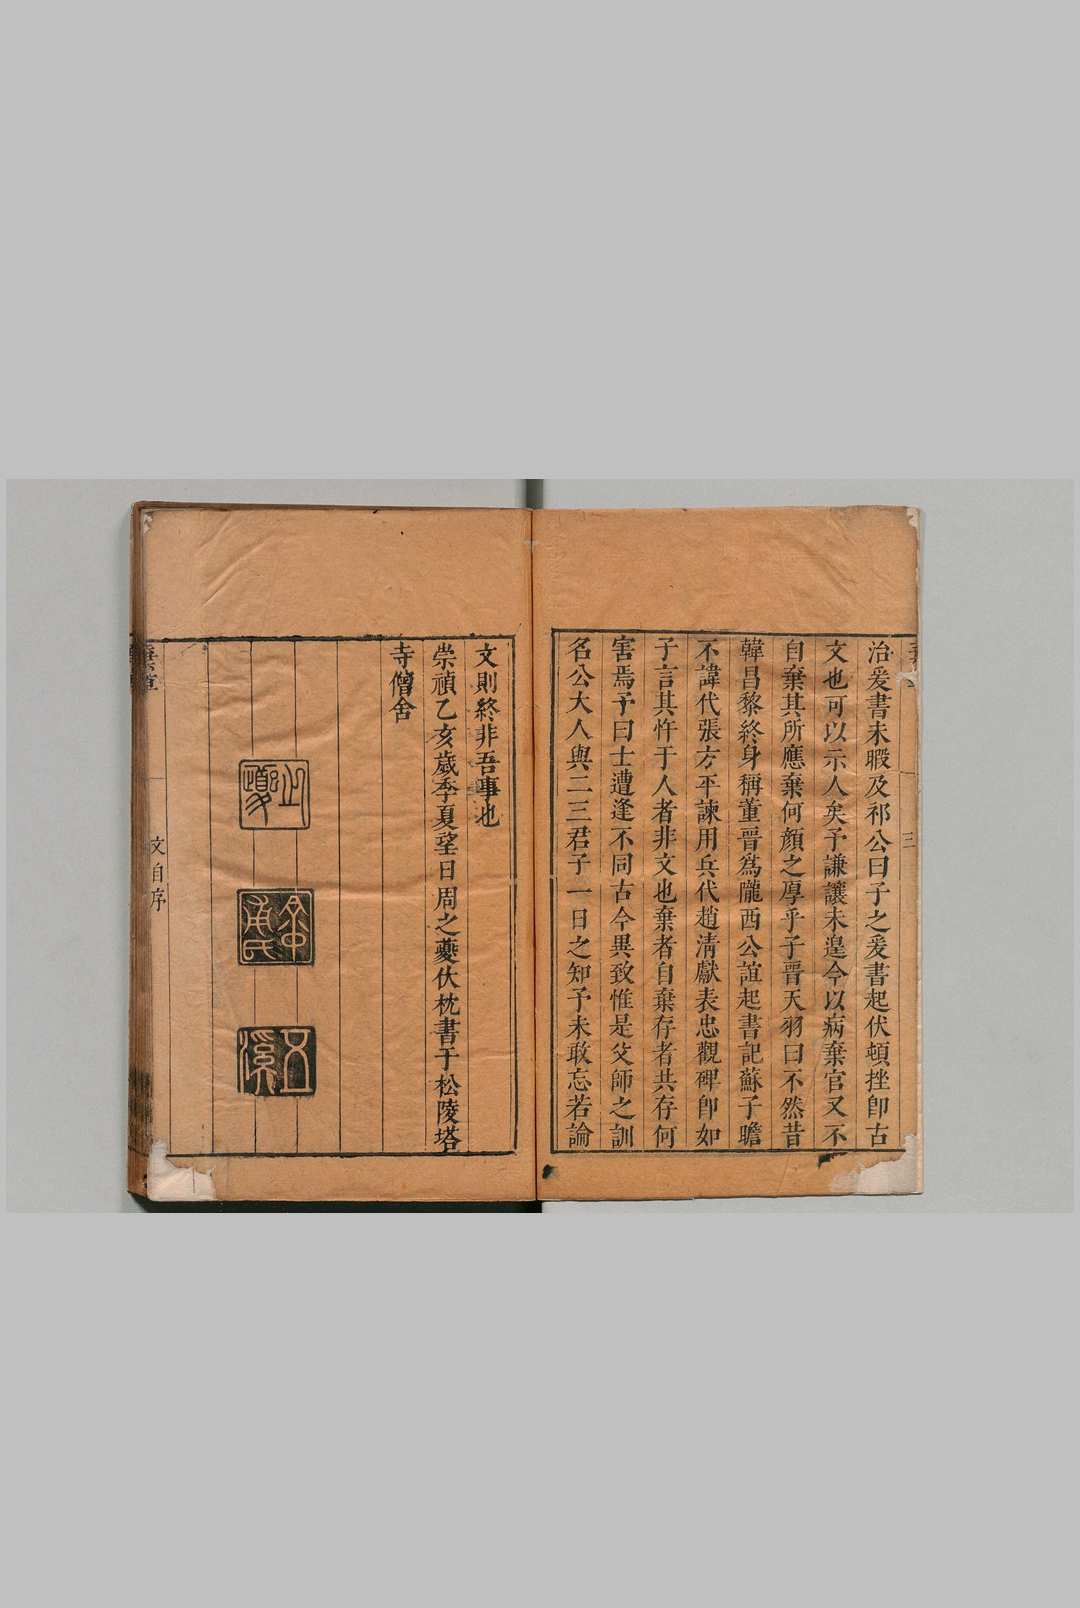 治爰書未暇及祁公曰子之爰書起伏頓挫卽古
文也可以示人矣予謙讓未遑今以病棄官又不
自棄其所應棄何顏之厚乎子晉天羽曰不然昔
韓昌黎終身稱董晉爲隴西公誼起書記蘇子瞻
不諱代張方平諫用兵代趙淸獻表忠觀碑卽如
子言其忤于人者非文也棄者自棄存者共存何
害焉予曰士遭逢不同古今異致惟是父師之訓
名公大人與二三君子一日之知予未敢忘若論
三
文則終非吾事也
崇禎乙亥歲季夏望日周之夔伏枕書于松陵塔
寺僧舍
之夔
五溪
文自序